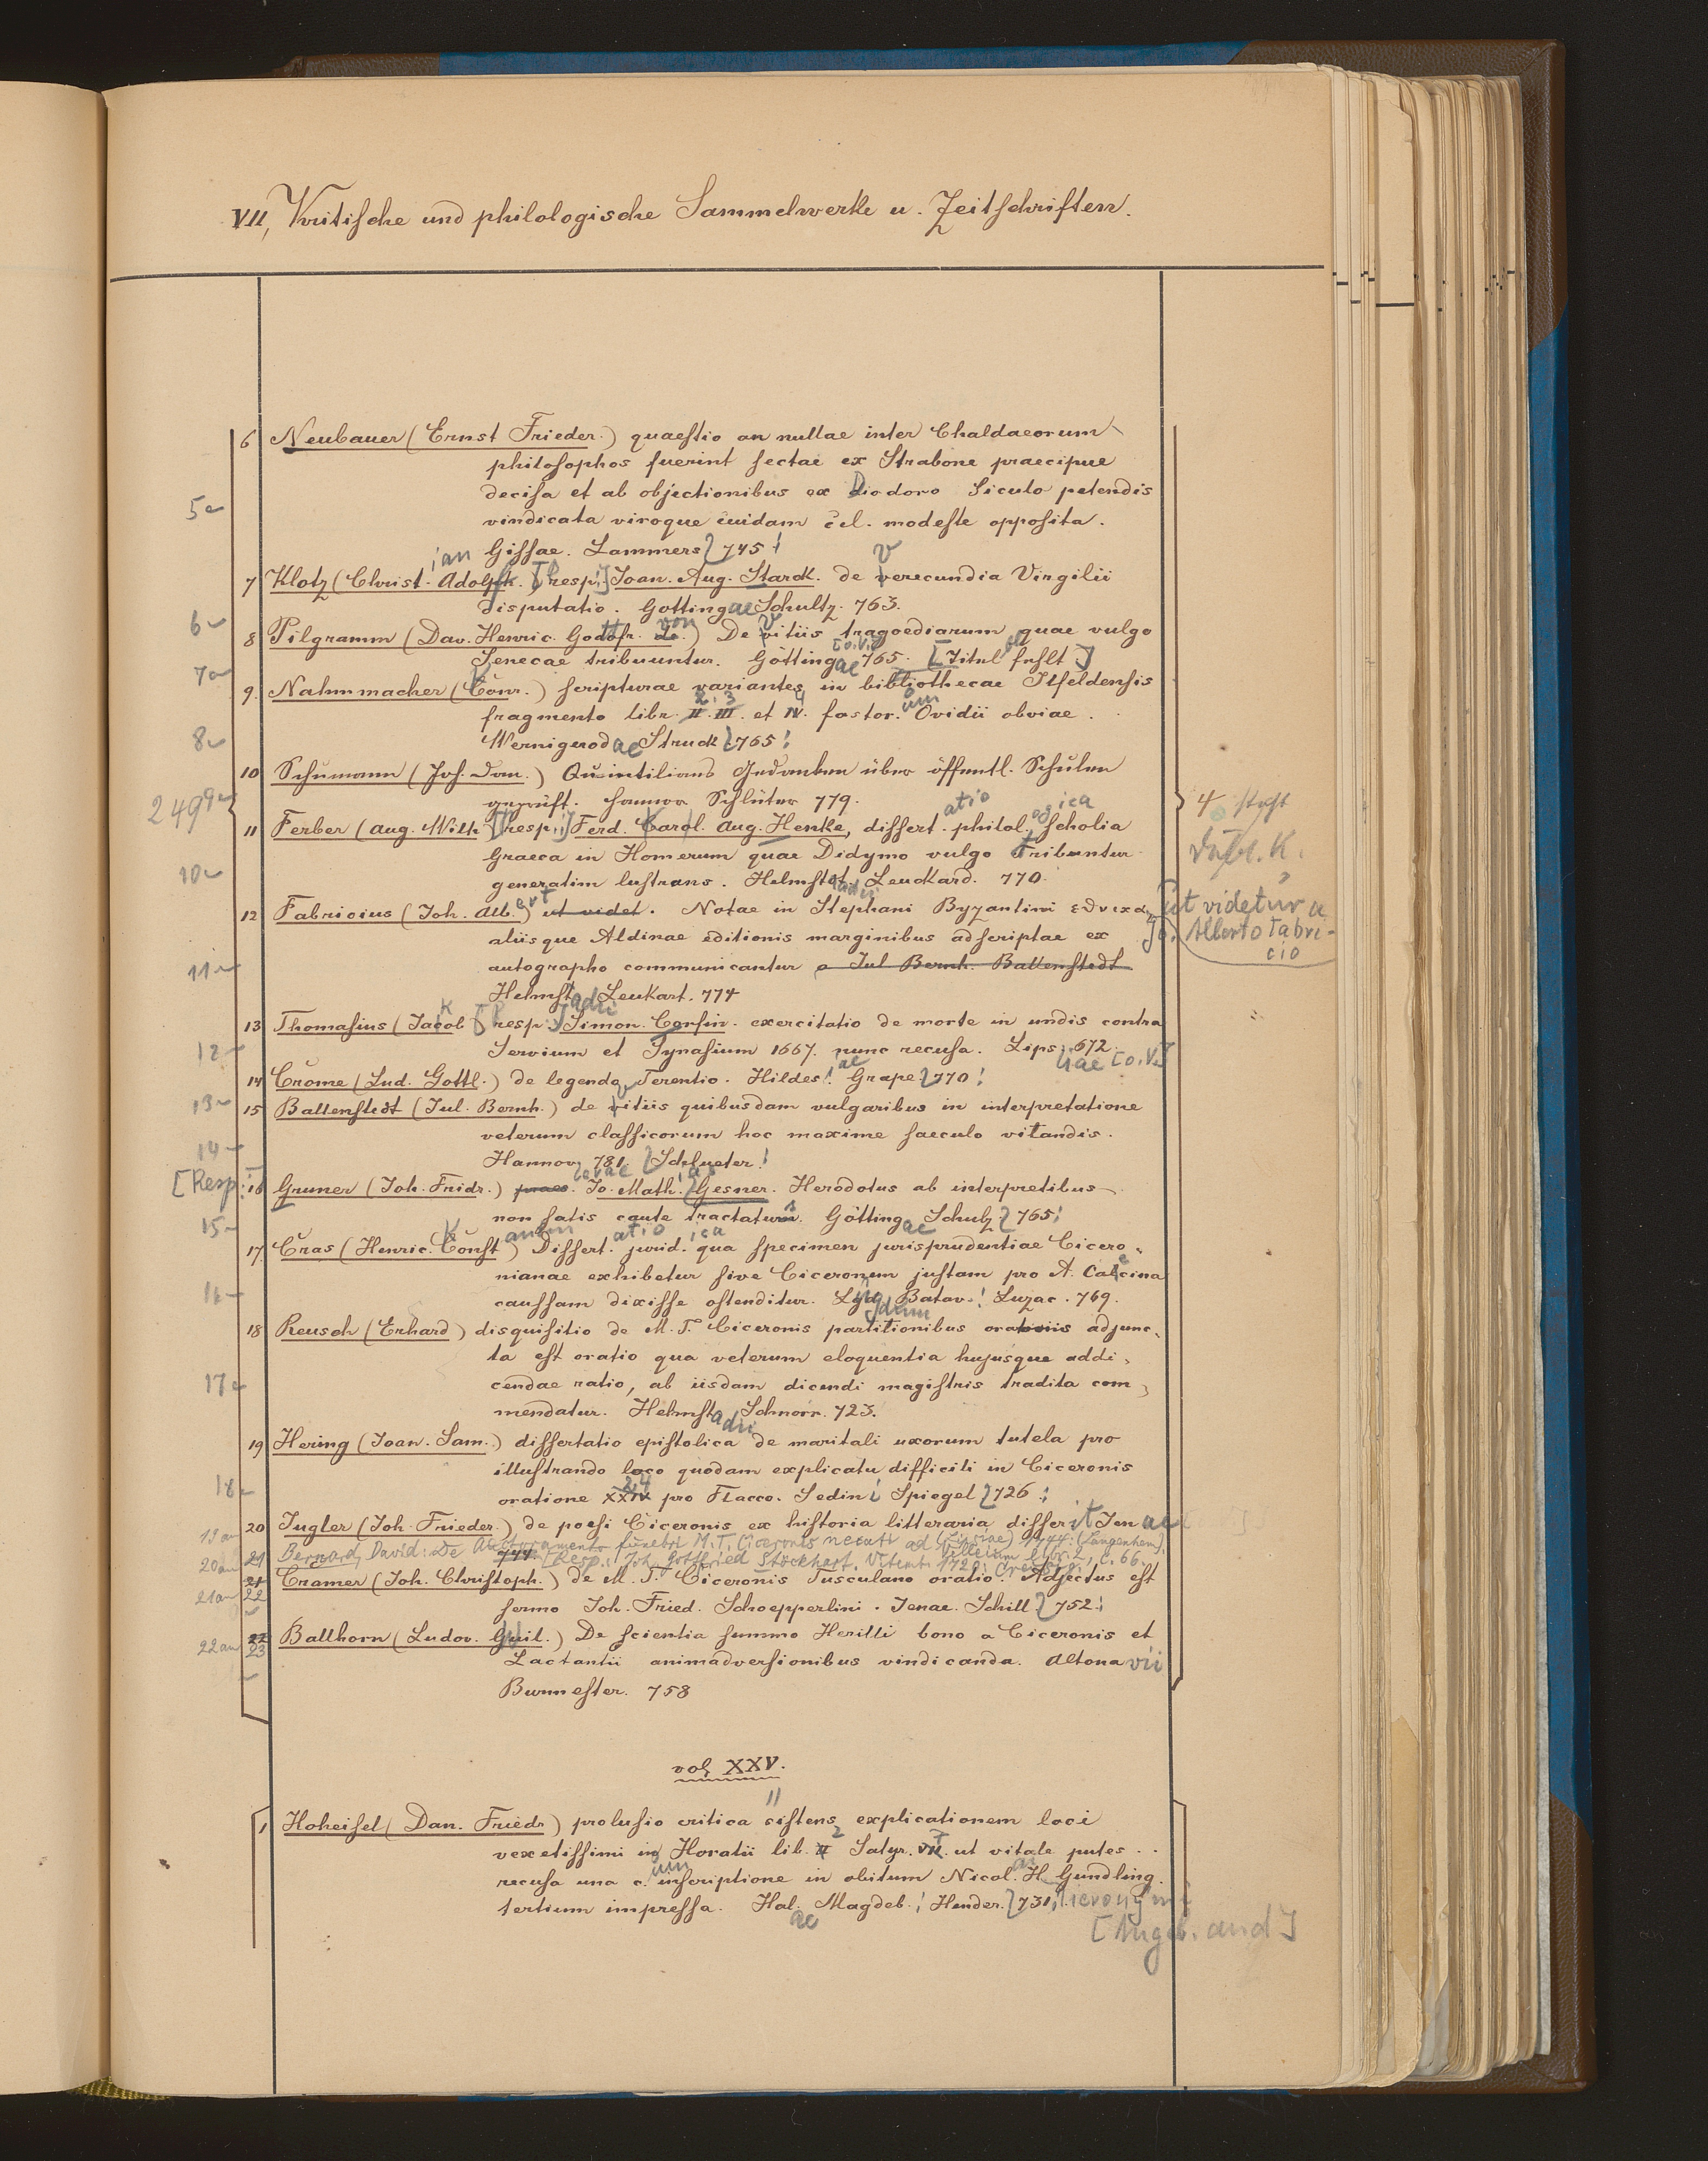 VII, Kritische und philologische Sammelwerke u. Zeitschriften.
6 Neubauer (Ernst Frieder.) quaestio an nullae inter Chaldaeorum
philosophos fuerint sectae ex Strabone praecipue
5
decisa et ab objectionibus ex Diodoro Siculo petendis
vindicata viroque cuidam cel. modeste opposita.
Gissae. Lammers 745
7 Klotz (Christ-ian Adolph. [resp:] Joan. Aug. Starck. de verecundia Virgilii
disputatio. Gottingae Schultz. 763.
6
8 Pilgramm (Dav. Henric. Gottfr. von) De vitiis tragoediarum quae vulgo
Senecae tribuuntur. Göttingae [o. V.] 765. [Titel fehlt]
7
9. Nahmmacher (Conr.) scripturae variantes in bibliothecae Ilfeldensis
fragmento libr. 2. 3. et 4. fastor.um Ovidii obviae.
8
Wernigerodae Struck 765
10 Schumann (Joh. Dan.) Quintilians Gedanken über öffentl. Schulen
geprüft. Hannov. Schlüter 779.
249 9
11 Ferber (Aug. Wilh [resp:] Ferd. Carol. Aug. Henke, dissert.atio philol.ogica scholia
4 steht
Graeca in Homerum quae Didymo vulgo tribuntur
generatim lustrans. Helmst. Leuckard. 770
10
12 Fabricius (Joh. Alb.ert) ut videt. Notae in Stephani Byzantini
ut videtur a
Jo. Alberto Fabri-
cio
aliisque Aldinae editionis marginibus adscriptae ex
autographo communicantur a Jul Bernh. Ballenstedt
11
Helmstadii Leukart. 774
13 Thomasius (Jakob [resp:] Simon. Corsin. exercitatio de morte in undis contra
12
Servium et Synasium 1667. nunc recusa. Lips:iae [o. V.] 672.
14 Crome (Lud. Gottl.) de legendo Terentio. Hildes. Grape 770
13
15 Ballenstedt (Jul. Bernh.) de vitiis quibusdam vulgaribus in interpretatione
veterum classicorum hoc maxime saeculo vitandis.
14
Hannoverae 781. Schlueter
[Resp:]
16 Gruner (Joh. Fridr.) praes. Jo. Math.ias Gesner. Herodotus ab interpretibus
non satis caute tractatus. Göttingae Schulz 765
15
17. Cras (Henric. Konst antin) Dissert.atio jurid.ica qua specimen jurisprudentiae Cicero-
nianae exhibetur sive Ciceronem justam pro A. Caecina
16
caussam dixisse ostenditur. Lugdunum Batav. Luzac. 769.
18 Reusch (Erhard) disquisitio de M. T. Ciceronis partitionibus oratoriis adjunc-
ta est oratio qua veterum eloquentia hujusque addi-
17
cendae ratio, ab iisdam dicendi magistris tradita com-
mendatur. Helmstadii Schnorr. 723.
19 Hering (Joan. Sam.) dissertatio epistolica de maritali uxorum tutela pro
illustrando loco quodam explicatu difficili in Ciceronis
18
oratione 24 pro Flacco. Sedini Spiegel 726
19 an
20 Jugler (Joh. Frieder.) de poesi Ciceronis ex historia litteraria disserit Jenae
744
20 an
21 Bernard, David: De funebri M. T. Ciceronis necati ad Velleium libr. 2, c. 66.
[Resp.: Joh. Gottfried Stockhert. Vitemb. 1729:
21 an
22 Cramer (Joh. Christoph.) de M. T. Ciceronis Tusculano oratio. Adjectus est
sermo Joh. Fried. Schoepperlini. Jenae. Schill 752
22 an
23 Ballhorn (Ludov. Guil.) De scientia summo Herilli bono a Ciceronis et
Lactantii animadversionibus vindicanda. Altonavii
Burmester. 758
vol. XXV.
1 Hoheisel (Dan. Friedr) prolusio critica sistens explicationem loci
vexetissimi in Horatii lib. 2 Satyr. 7. ut vitale putes . .
recusa una c.um inscriptione in obitum Nicol.ai H. Gundling.
tertium impressa. Halae Magdeb. Hender. 731. Hieronymi
[Angeb. and]